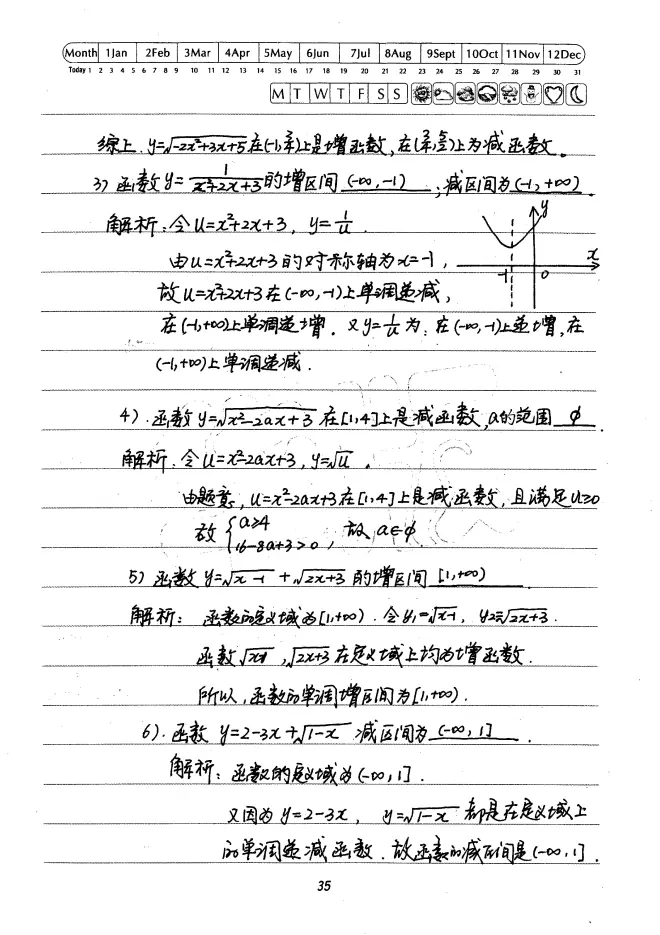 Month 1Jan 2Feb 3Mar 4Apr 5May 6Jun 7Jul 8Aug 9Sept 10Oct 11Nov 12Dec
Today 1 2 3 4 5 6 7 8 9 10 11 12 13 14 15 16 17 18 19 20 21 22 23 24 25 26 27 28 29 30 31
M T W T F S S
综上.y=√(-2x²+3x+5)在(-1,3/4)上是增函数,在(3/4,5/2)上为减函数.
3)函数y=1/(x²+2x+3)的增区间(-∞,-1);减区间为(-1,+∞)
解析:令u=x²+2x+3,y=1/u.
y
由u=x²+2x+3的对称轴为x=-1,
x
-1 0
故u=x²+2x+3在(-∞,-1)上单调递减,
在(-1,+∞)上单调递增.又y=1/u为:在(-∞,-1)上递增,在
(-1,+∞)上单调递减.
4).函数y=√(x²-2ax+3)在[1,4]上是减函数,a的范围 ϕ
解析:令u=x²-2ax+3,y=√u.
由题意,u=x²-2ax+3在[1,4]上是减函数,且满足u≥0
故{a≥4
16-8a+3>0,故a∈ϕ.
5)函数y=√(x-1)+√(2x+3)的增区间[1,+∞)
解析:函数的定义域为[1,+∞).令y₁=√(x-1),y₂=√(2x+3).
函数√(x-1),√(2x+3)在定义域上均为增函数.
所以,函数的单调增区间为[1,+∞).
6).函数y=2-3x+√(1-x)减区间为(-∞,1]
解析:函数的定义域为(-∞,1].
又因为y=2-3x,y=√(1-x)都是在定义域上
的单调递减函数.故函数的减区间是(-∞,1].
35